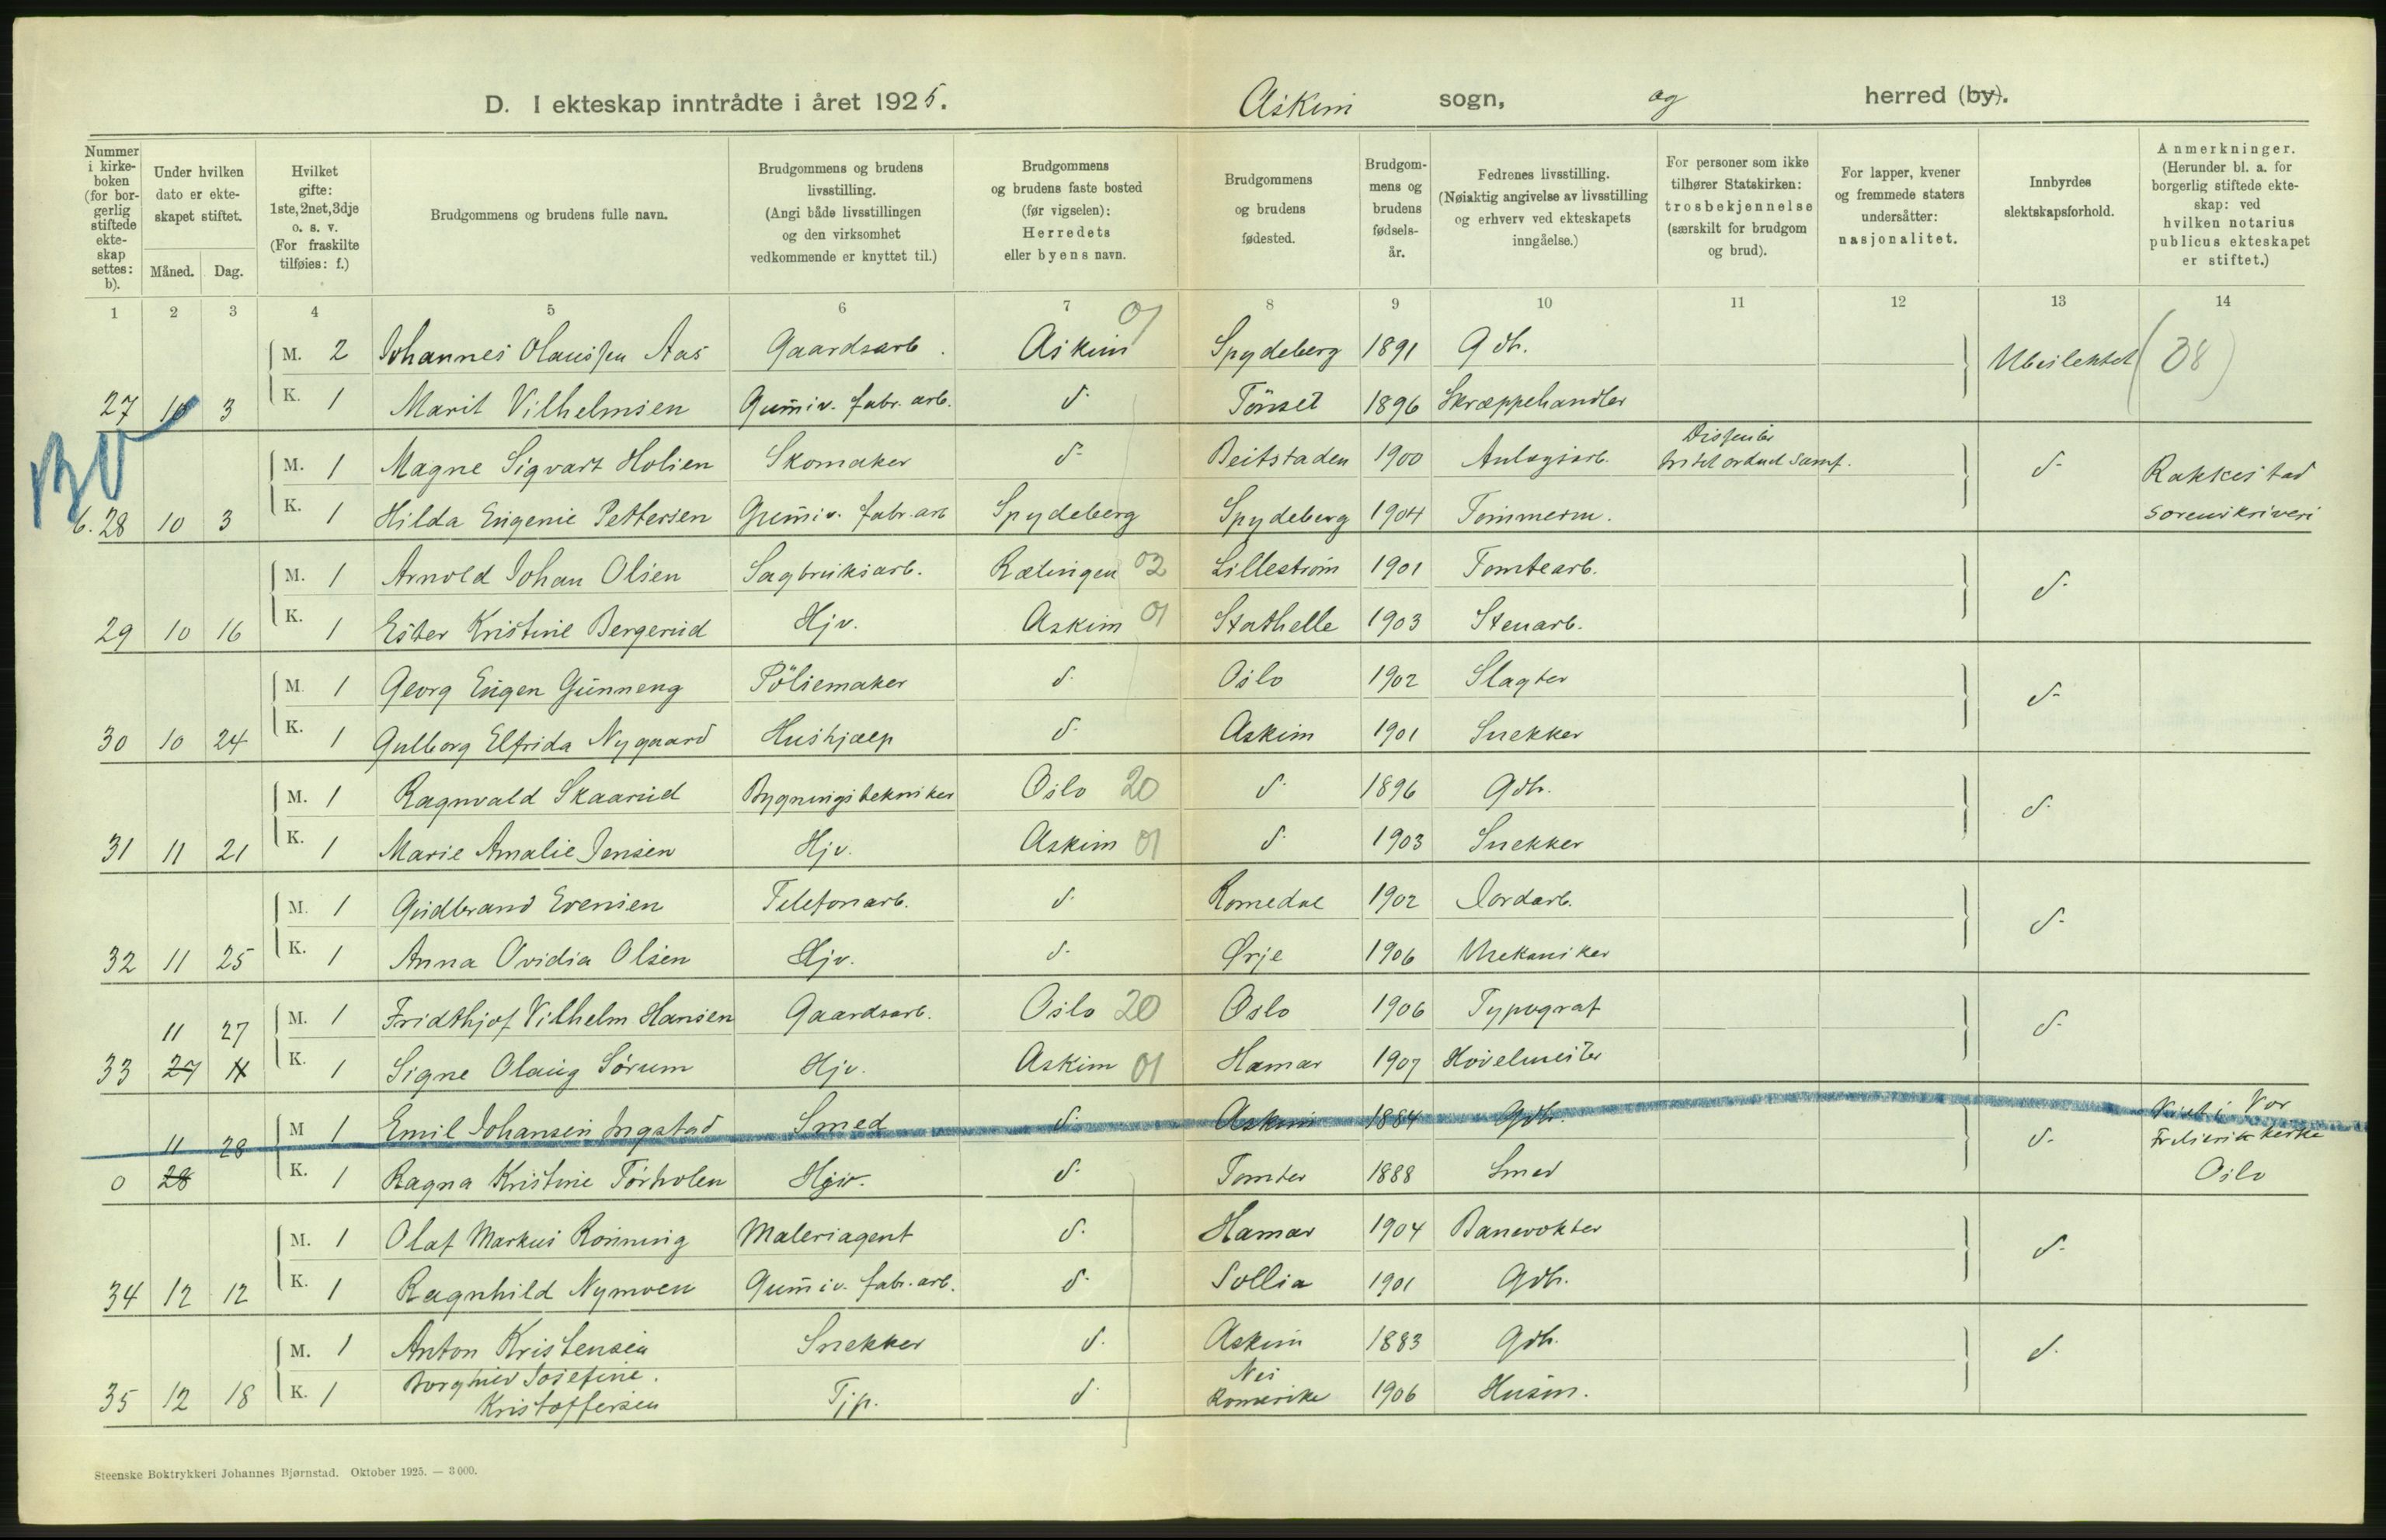 D. I ekteskap inntrådte i året 1925. Askim sogn, og herred (by).
Nummer i kirkeboken (for borgerlig stiftede ekteskap settes: b).
Under hvilken dato er ekteskapet stiftet.
Måned. Dag.
Hvilket gifte: 1ste, 2net, 3dje o. s. v. (For fraskilte tilføies: f.)
Brudgommens og brudens fulle navn.
Brudgommens og brudens livsstilling. (Angi både livsstillingen og den virksomhet vedkommende er knyttet til.)
Brudgommens og brudens faste bosted (før vigselen): Herredets eller byens navn.
Brudgommens og brudens fødested.
Brudgommens og brudens fødselsår.
Fedrenes livsstilling. (Nøiaktig angivelse av livsstilling og erhverv ved ekteskapets inngåelse.)
For personer som ikke tilhører Statskirken: trosbekjennelse (særskilt for brudgom og brud).
For lapper, kvener og fremmede staters undersåtter: nasjonalitet.
Innbyrdes slektskapsforhold.
Anmerkninger. (Herunder bl. a. for borgerlig stiftede ekteskap: ved hvilken notarius publicus ekteskapet er stiftet.)
1 2 3 4 5 6 7 8 9 10 11 12 13 14
M. 2 Johannes Olaussen Aas Gaardsarb. Askim 01 Spydeberg 1891 Gdb. Ubeslektet (38)
27 10 3 K. 1 Marit Vilhelmsen Gummiv. fabr. arb. d- Tönset 1896 Skræppehandler
M. 1 Magne Sigvart Holien Skomaker d- Beitstaden 1900 Anlægsarb. Dissenter d- Rakkestad
b. 28 10 3 K. 1 Hilda Eugenie Pettersen Gummiv. fabr. arb Spydeberg Spydeberg 1904 Tømmerm. Sorenskriveri
M. 1 Arnold Johan Olsen Sagbruksarb. Rælingen 02 Lillestrøm 1901 Tomtearb. d-
29 10 16 K. 1 Ester Kristine Bergerud Hjv. Askim 01 Stathelle 1903 Stenarb.
M. 1 Georg Eugen Gunneng Pölsemaker d- Oslo 1902 Slagter d-
30 10 24 K. 1 Gulborg Elfrida Nygaard Hushjælp d- Askim 1901 Snekker
M. 1 Ragnvald Skaarud Bygningstekniker Oslo 20 d- 1896 Gdb. d-
31 11 21 K. 1 Marie Amalie Jensen Hjv. Askim 01 d- 1903 Snekker
M. 1 Gudbrand Evensen Telefonarb. d- Romedal 1902 Jordarb. d-
32 11 25 K. 1 Anna Ovidia Olsen Hjv. d- Ørje 1906 Mekaniker
11 27 M. 1 Fridthjof Vilhelm Hansen Gaardsarb. Oslo 20 Oslo 1906 Typograf d-
33 27 11 K. 1 Signe Olaug Sørum Hjv. Askim 01 Hamar 1907 Høvelmester
11 28 M 1 Emil Johansen Ingstad Smed d- Askim 1884 Gdb. d- Viet i Vor Frelsers kirke
0 28 K. 1 Ragna Kristine Tørholen Hjv. d- Tomter 1888 Smed Oslo
M. 1 Olaf Markus Rønning Maleriagent d- Hamar 1904 Banevokter d-
34 12 12 K. 1 Ragnhild Nymoen Gummiv. fabr. arb. d- Sollia 1901 Gdb.
M. 1 Anton Kristensen Snekker d- Askim 1883 Gdb. d-
35 12 18 K. 1 Borghild Josefine Kristoffersen Tjp. d- Nes Romerike 1906 Husm.
Steenske Boktrykkeri Johannes Bjørnstad. Oktober 1925. — 3000.